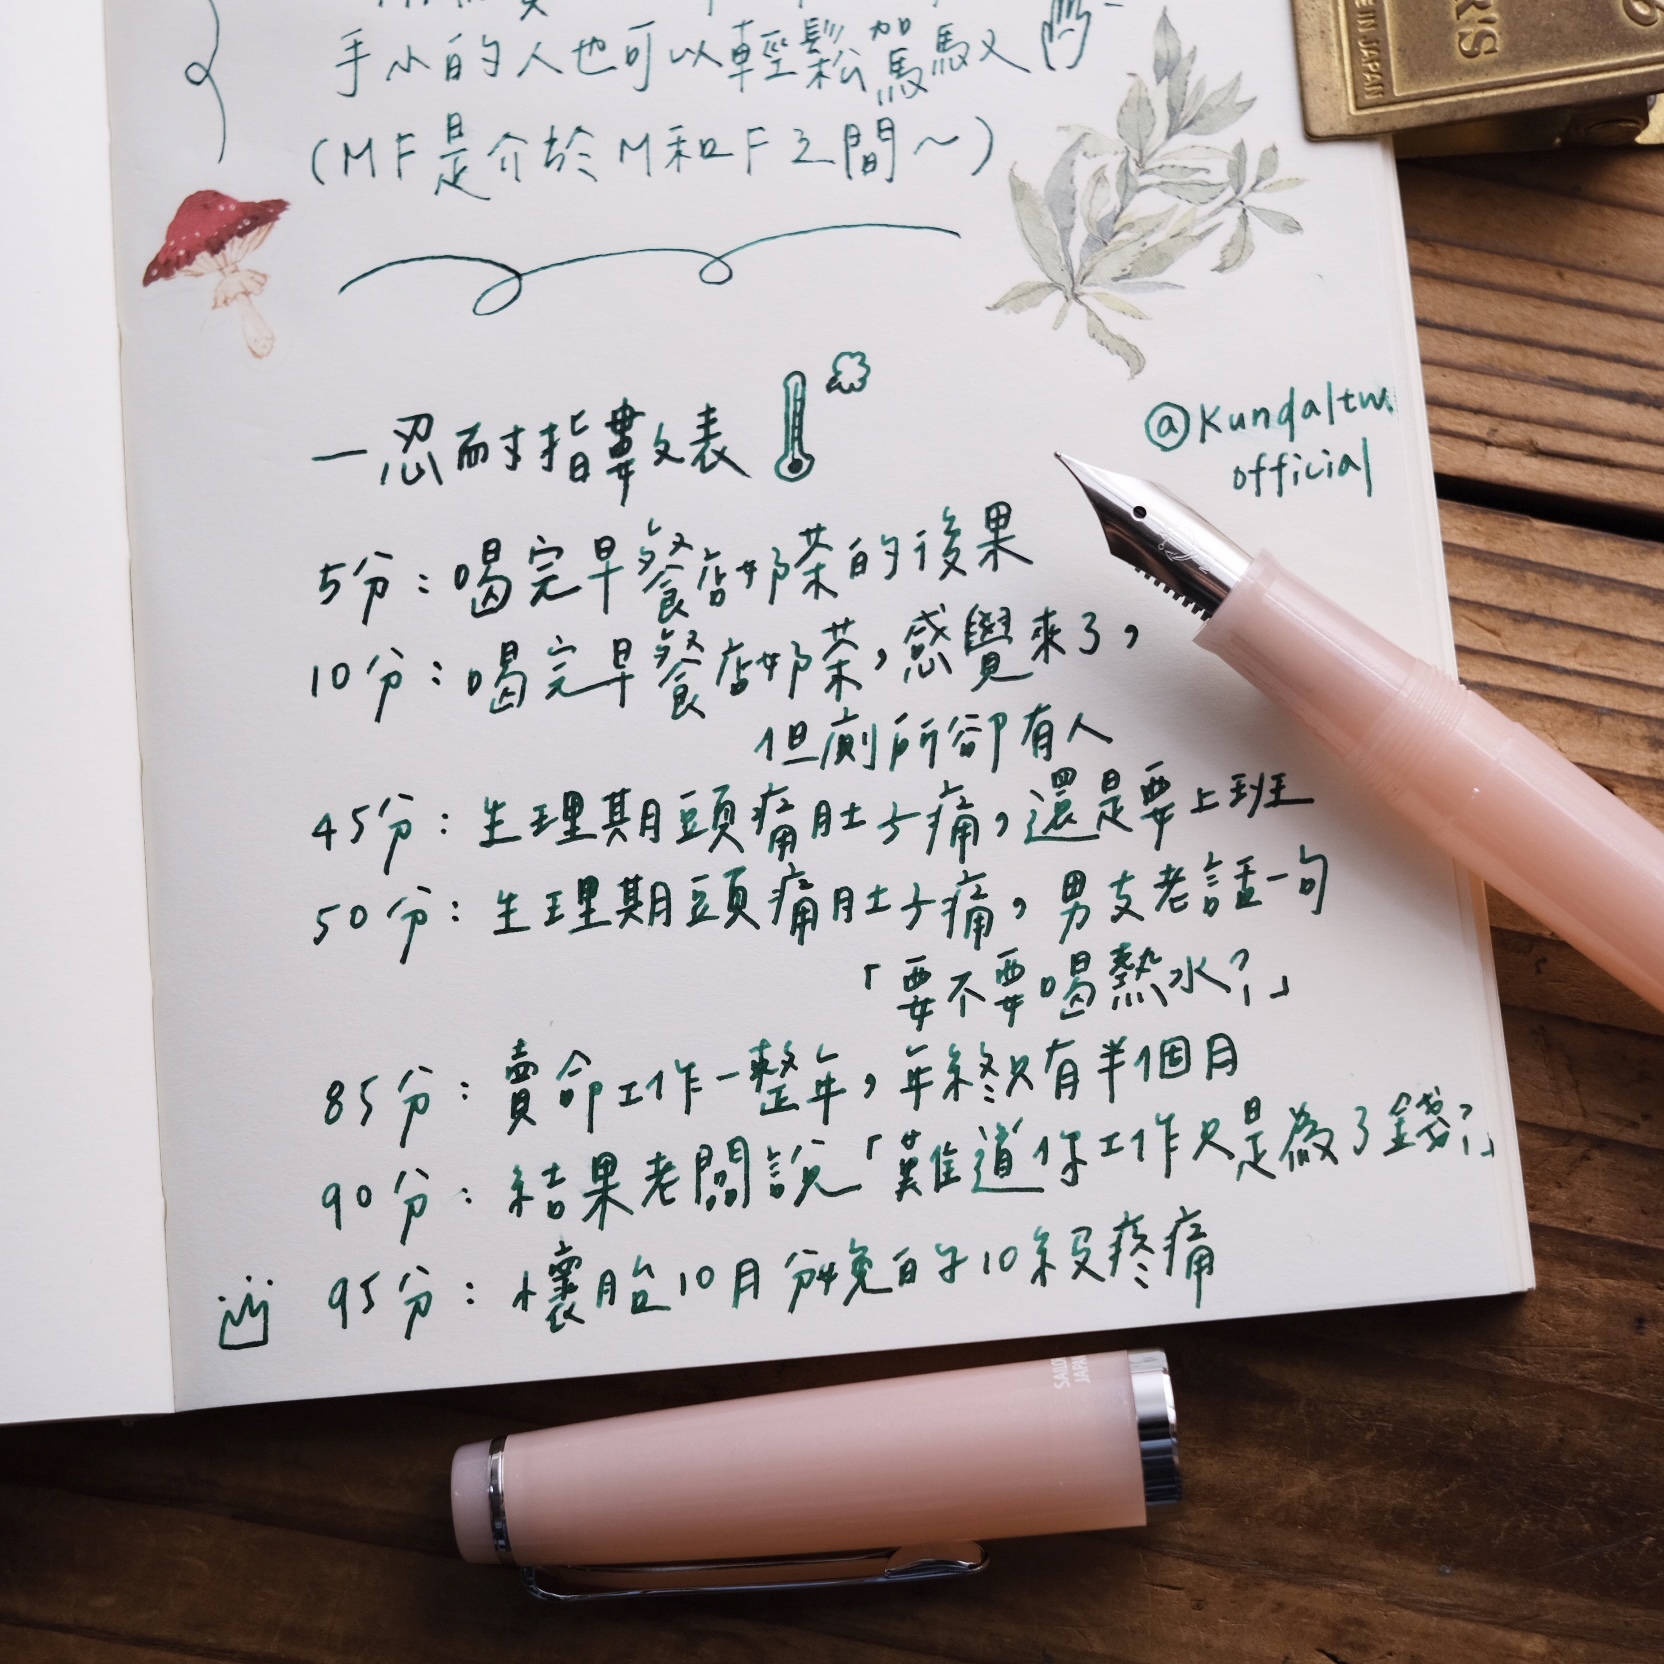 手小的人也可以輕鬆駕馭
(MF是介於M和F之間～)
MADE IN JAPAN
R'S
一忍耐指數表
@Kundaltw.
official
5分：喝完早餐店奶茶的後果
10分：喝完早餐店奶茶，感覺來了，
但廁所卻有人
45分：生理期頭痛肚子痛，還是要上班
50分：生理期頭痛肚子痛，男友老話一句
「要不要喝熱水？」
85分：賣命工作一整年，年終只有半個月
90分：結果老闆說「難道你工作只是為了錢？」
95分：懷胎10月分娩的10級疼痛